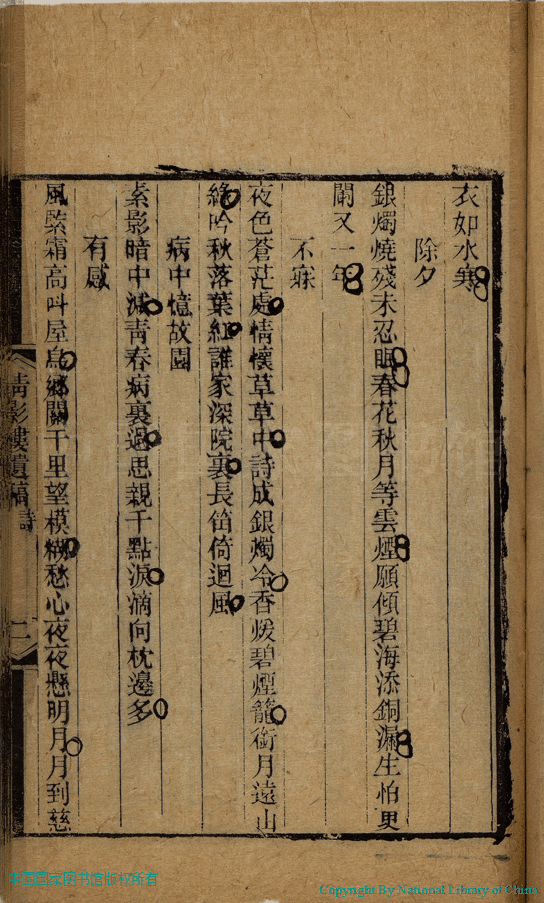 衣如水寒
除夕
銀燭燒殘未忍眠春花秋月等雲煙願傾碧海添銅漏生怕更
闌又一年
不寐
夜色蒼茫處情懷草草中詩成銀燭冷香煖碧煙籠銜月遠山
綠吟秋落葉紅誰家深院裏長笛倚迴風
病中憶故園
素影暗中減青春病裏過思親千點淚滴向枕邊多
有感
風緊霜高叫屋烏鄉關千里望模糊愁心夜夜懸明月月到慈
清影樓遺稿 詩
二
中国国家图书馆版权所有
Copyright By National Library of China